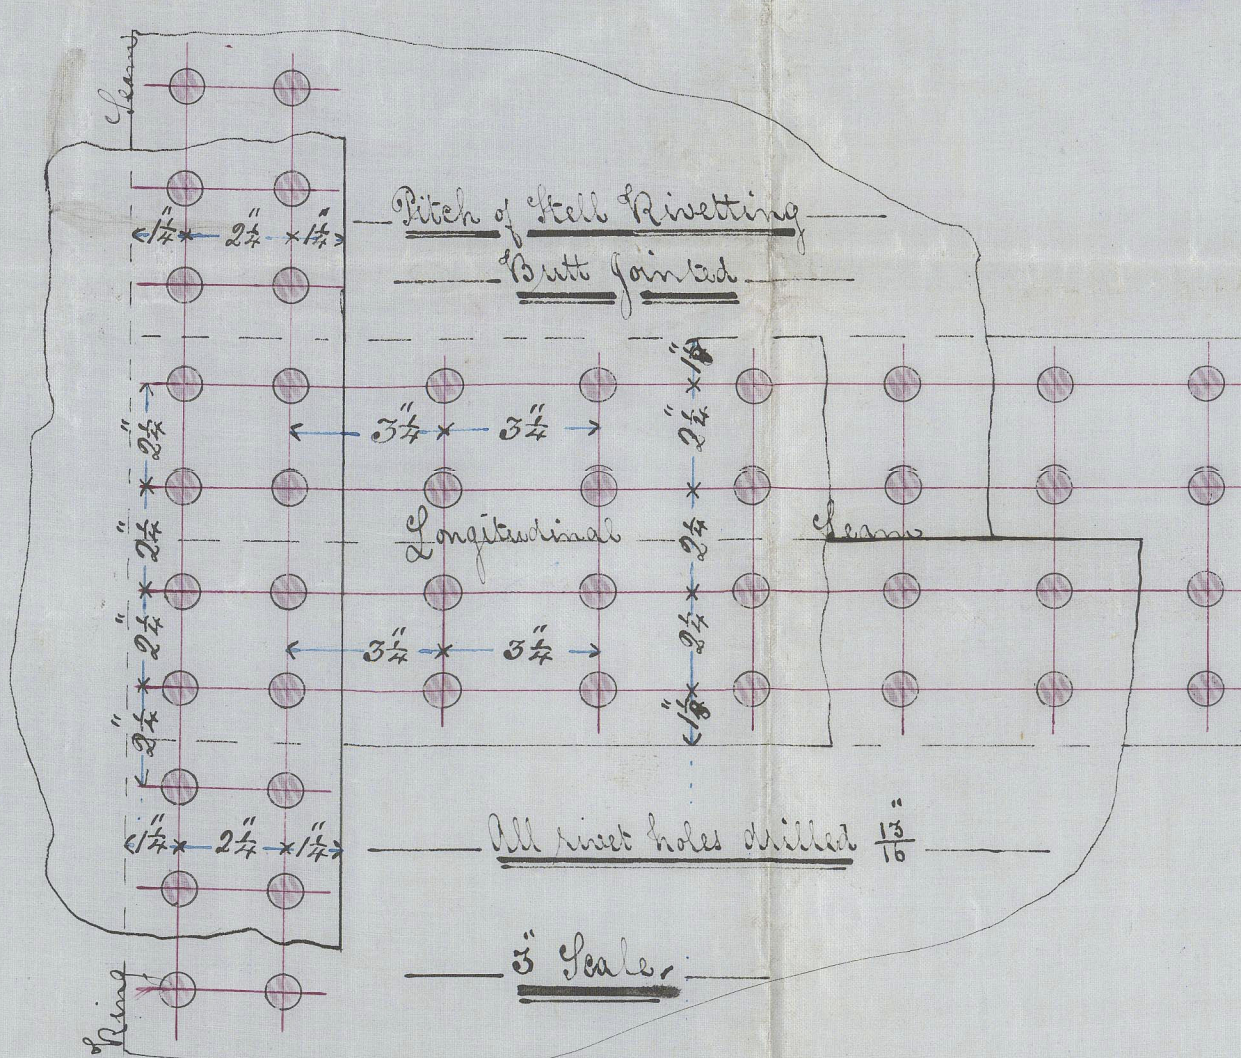 Seam
1¼" 2¼" 1¼"
Pitch of Stell Rivetting
Butt Jointed
2¼" 2¼" 2¼" 2¼"
3¼" 3¼"
2¼" 2¼" 2¼"
Longitudinal Seam
3¼" 3¼"
1¼" 2¼" 1¼"
All rivet holes drilled 13/16"
3" Scale.
Ring